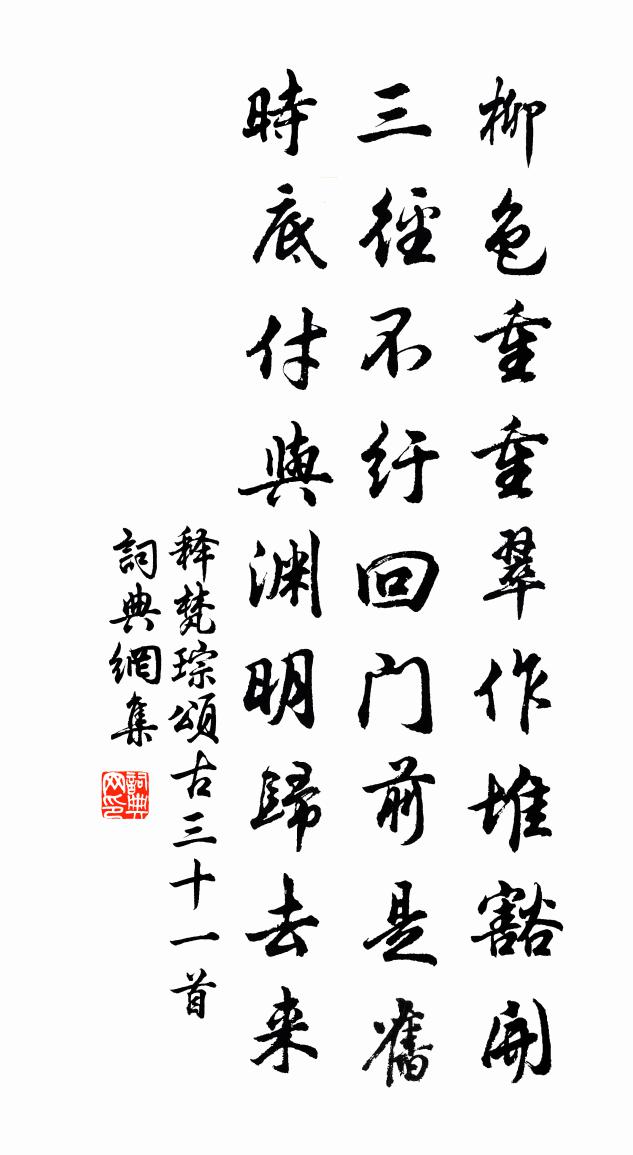 柳色重重翠作堆豁開
三徑不紆回门前是舊
時底付與渊明歸去来
释梵琮頌古三十一首
詞典網集
詞典网印